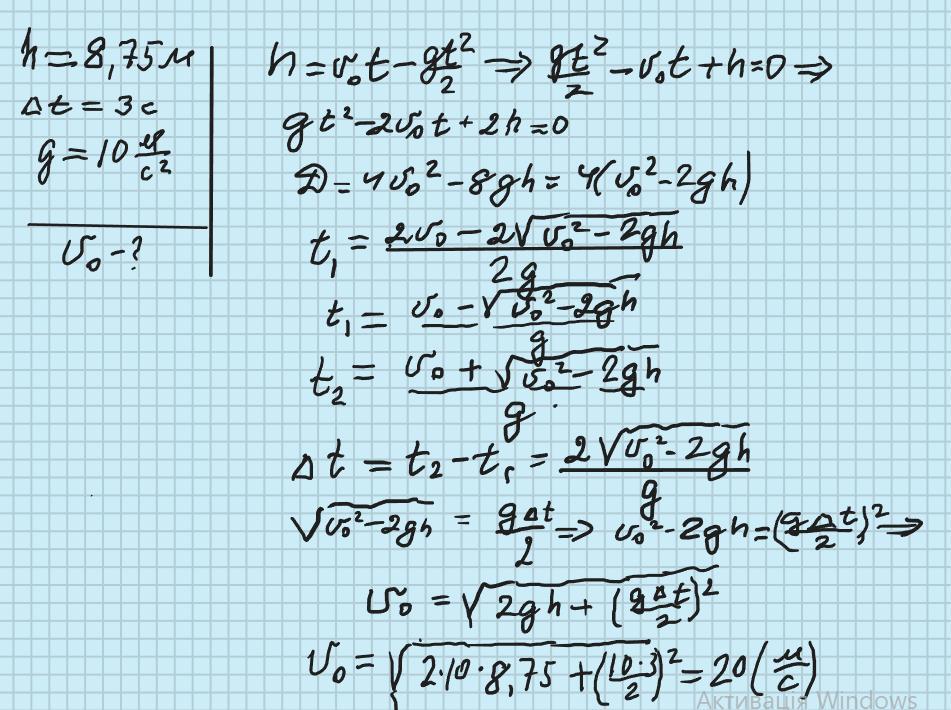 h = 8,75 м
Δt = 3 c
g = 10 м/c²
v₀ - ?
h = v₀t - gt²/2 ⇒ gt²/2 - v₀t + h = 0 ⇒
gt² - 2v₀t + 2h = 0
D = 4v₀² - 8gh = 4(v₀² - 2gh)
t₁ = (2v₀ - 2√(v₀² - 2gh))/2g
t₁ = (v₀ - √(v₀² - 2gh))/g
t₂ = (v₀ + √(v₀² - 2gh))/g
Δt = t₂ - t₁ = 2√(v₀² - 2gh)/g
√(v₀² - 2gh) = gΔt/2 ⇒ v₀² - 2gh = (gΔt/2)² ⇒
v₀ = √(2gh + (gΔt/2)²)
v₀ = √(2·10·8,75 + (10·3/2)²) = 20 (м/c)
Активація Windows